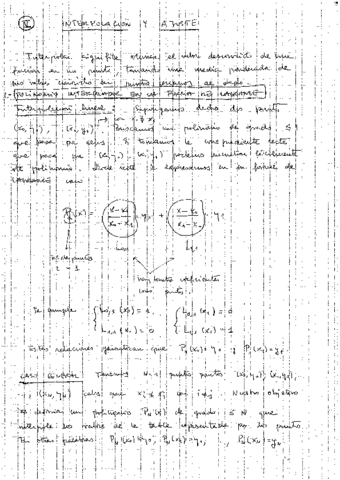 IV INTERPOLACIÓN Y AJUSTE
Interpolar significa obtener el valor desconocido de una
función en un punto tomando una media ponderada de
sus valor conocidos en puntos cercanos al dado.
1.- POLINOMIO INTERPOLADOR EN LA FORMA DE LAGRANGE
Interpolación lineal. Supongamos dados dos puntos
(x₀, y₀), (x₁, y₁). Buscamos un polinomio de grado ≤ 1
que pase por ellos. Si tomamos la correspondiente recta
que pasa por (x₀, y₀) (x₁, y₁) podemos
este polinomio. Si lo expresamos en su forma de
LAGRANGE
P₁(x) = (x-x₁ / x₀-x₁) y₀ + (x-x₀ / x₁-x₀) y₁
L₁,₀ L₁,₁
nº de puntos
2 - 1
hay tantos coeficientes
como puntos.
Se cumple { L₁,₀ (x₀) = 1 { L₁,₁ (x₀) = 0
L₁,₀ (x₁) = 0 L₁,₁ (x₁) = 1
Estas relaciones garantizan que P₁(x₀) = y₀ y P₁(x₁) = y₁
CASO GENERAL Tenemos N+1 puntos (x₀, y₀), (x₁, y₁),
, (x_N, y_N) tales que xᵢ ≠ xⱼ con i ≠ j. Nuestro objetivo
es definir un polinomio P_N(x) de grado ≤ N que
interpole los valores de la tabla representada por los puntos.
En otras palabras: P_N(x₀) = y₀, P_N(x₁) = y₁, , P_N(x_N) = y_N